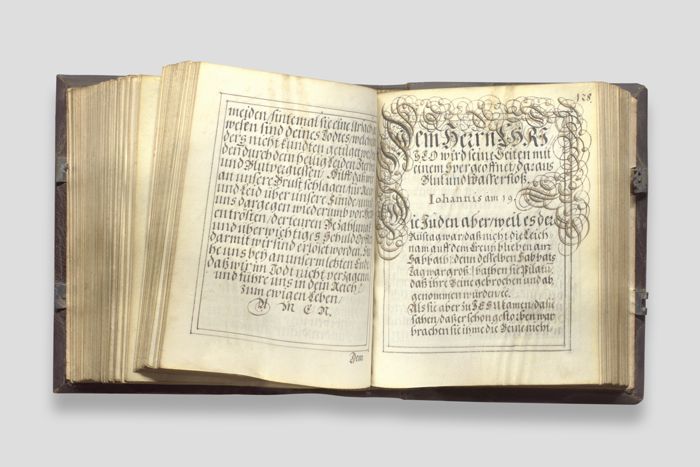 meiden sintemal sie eine Ursach
wesen sind deines Todtes/welcher
ders nicht kundten getilget werden
den durch dein heilig leiden Sterben
und Blutvergiessen/ Hilff das wir
an unsere Brust schlagen für Rew
und Leid uber unsere Sünde/und
uns dargegen wiederumb von hertzen
en trösten/der teuren Bezahlung
und uberwichtiges Schuldopffer
darmit wir sind erlöset worden.
he uns bey an unserm letzten Ende
daß wir im Todt nicht verzagen
und führe uns in dein Reich/
zum ewigen Leben/
A M E N.
Dem
128
Dem Herrn CHRI
STO wird seine Seiten mit
einem Sper geöffnet/daraus
Blut und Wasser floß.
Iohannis am 19.
Die Jüden aber/weil es der
Rüstag war daß nicht die Leich
nam auff dem Creutz blieben am
Sabbath/ denn desselben Sabbats
Tag war groß/ bathen sie Pilatū/
daß ihre Beine gebrochen und ab
genommen würden/ etc.
Als sie aber zu JESU kamen/da sie
sahen/daß er schon gestorben war
brachen sie ihme die Beine nicht.